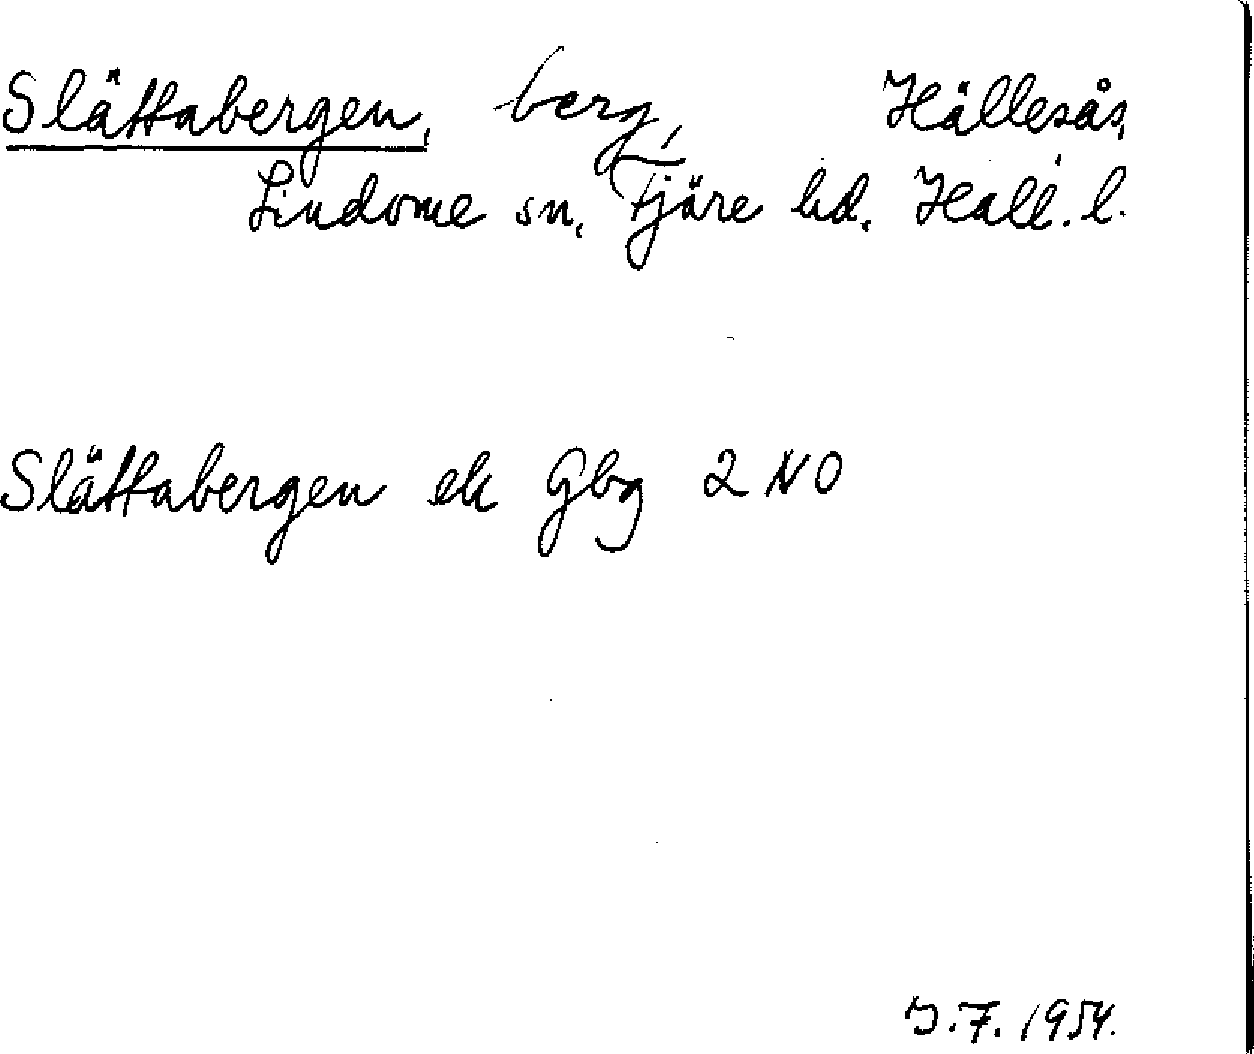 Slättabergen, berg, Hällesås,
Lindome sn, Fjäre hd. Hall. l.
Slättabergen ek Gbg 2 NO
J.F. 1954.